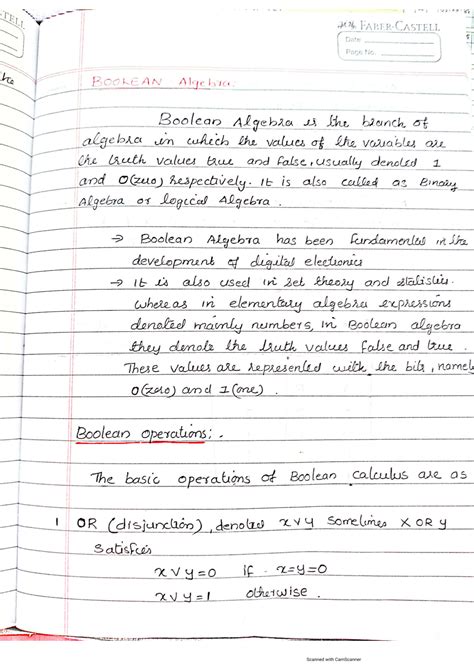 TELL
the
FABER-CASTELL
Date
Page No.
BOOLEAN Algebra.
Boolean Algebra is the branch of
algebra in which the values of the variables are
the truth values true and false, usually denoted 1
and 0(zero) respectively. It is also called as Binary
Algebra or logical Algebra.
→ Boolean Algebra has been fundamental in the
development of digital electronics
→ It is also used in set theory and statistics.
whereas in elementary algebra expressions
denoted mainly numbers, in Boolean algebra
they denote the truth values false and true.
These values are represented with the bits, namel
0(zero) and 1(one).
Boolean operations:.
The basic operations of Boolean calculus are as
1 OR (disjunction), denoted x∨y sometimes X OR y
satisfies
x∨y=0 if x=y=0
x∨y=1 otherwise.
Scanned with CamScanner